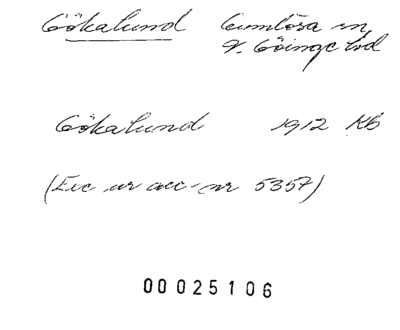 Gökalund Gumlösa sn
V. Göinge hd
Gökalund 1912 KB
(Exc ur acc-nr 5357)
00025106